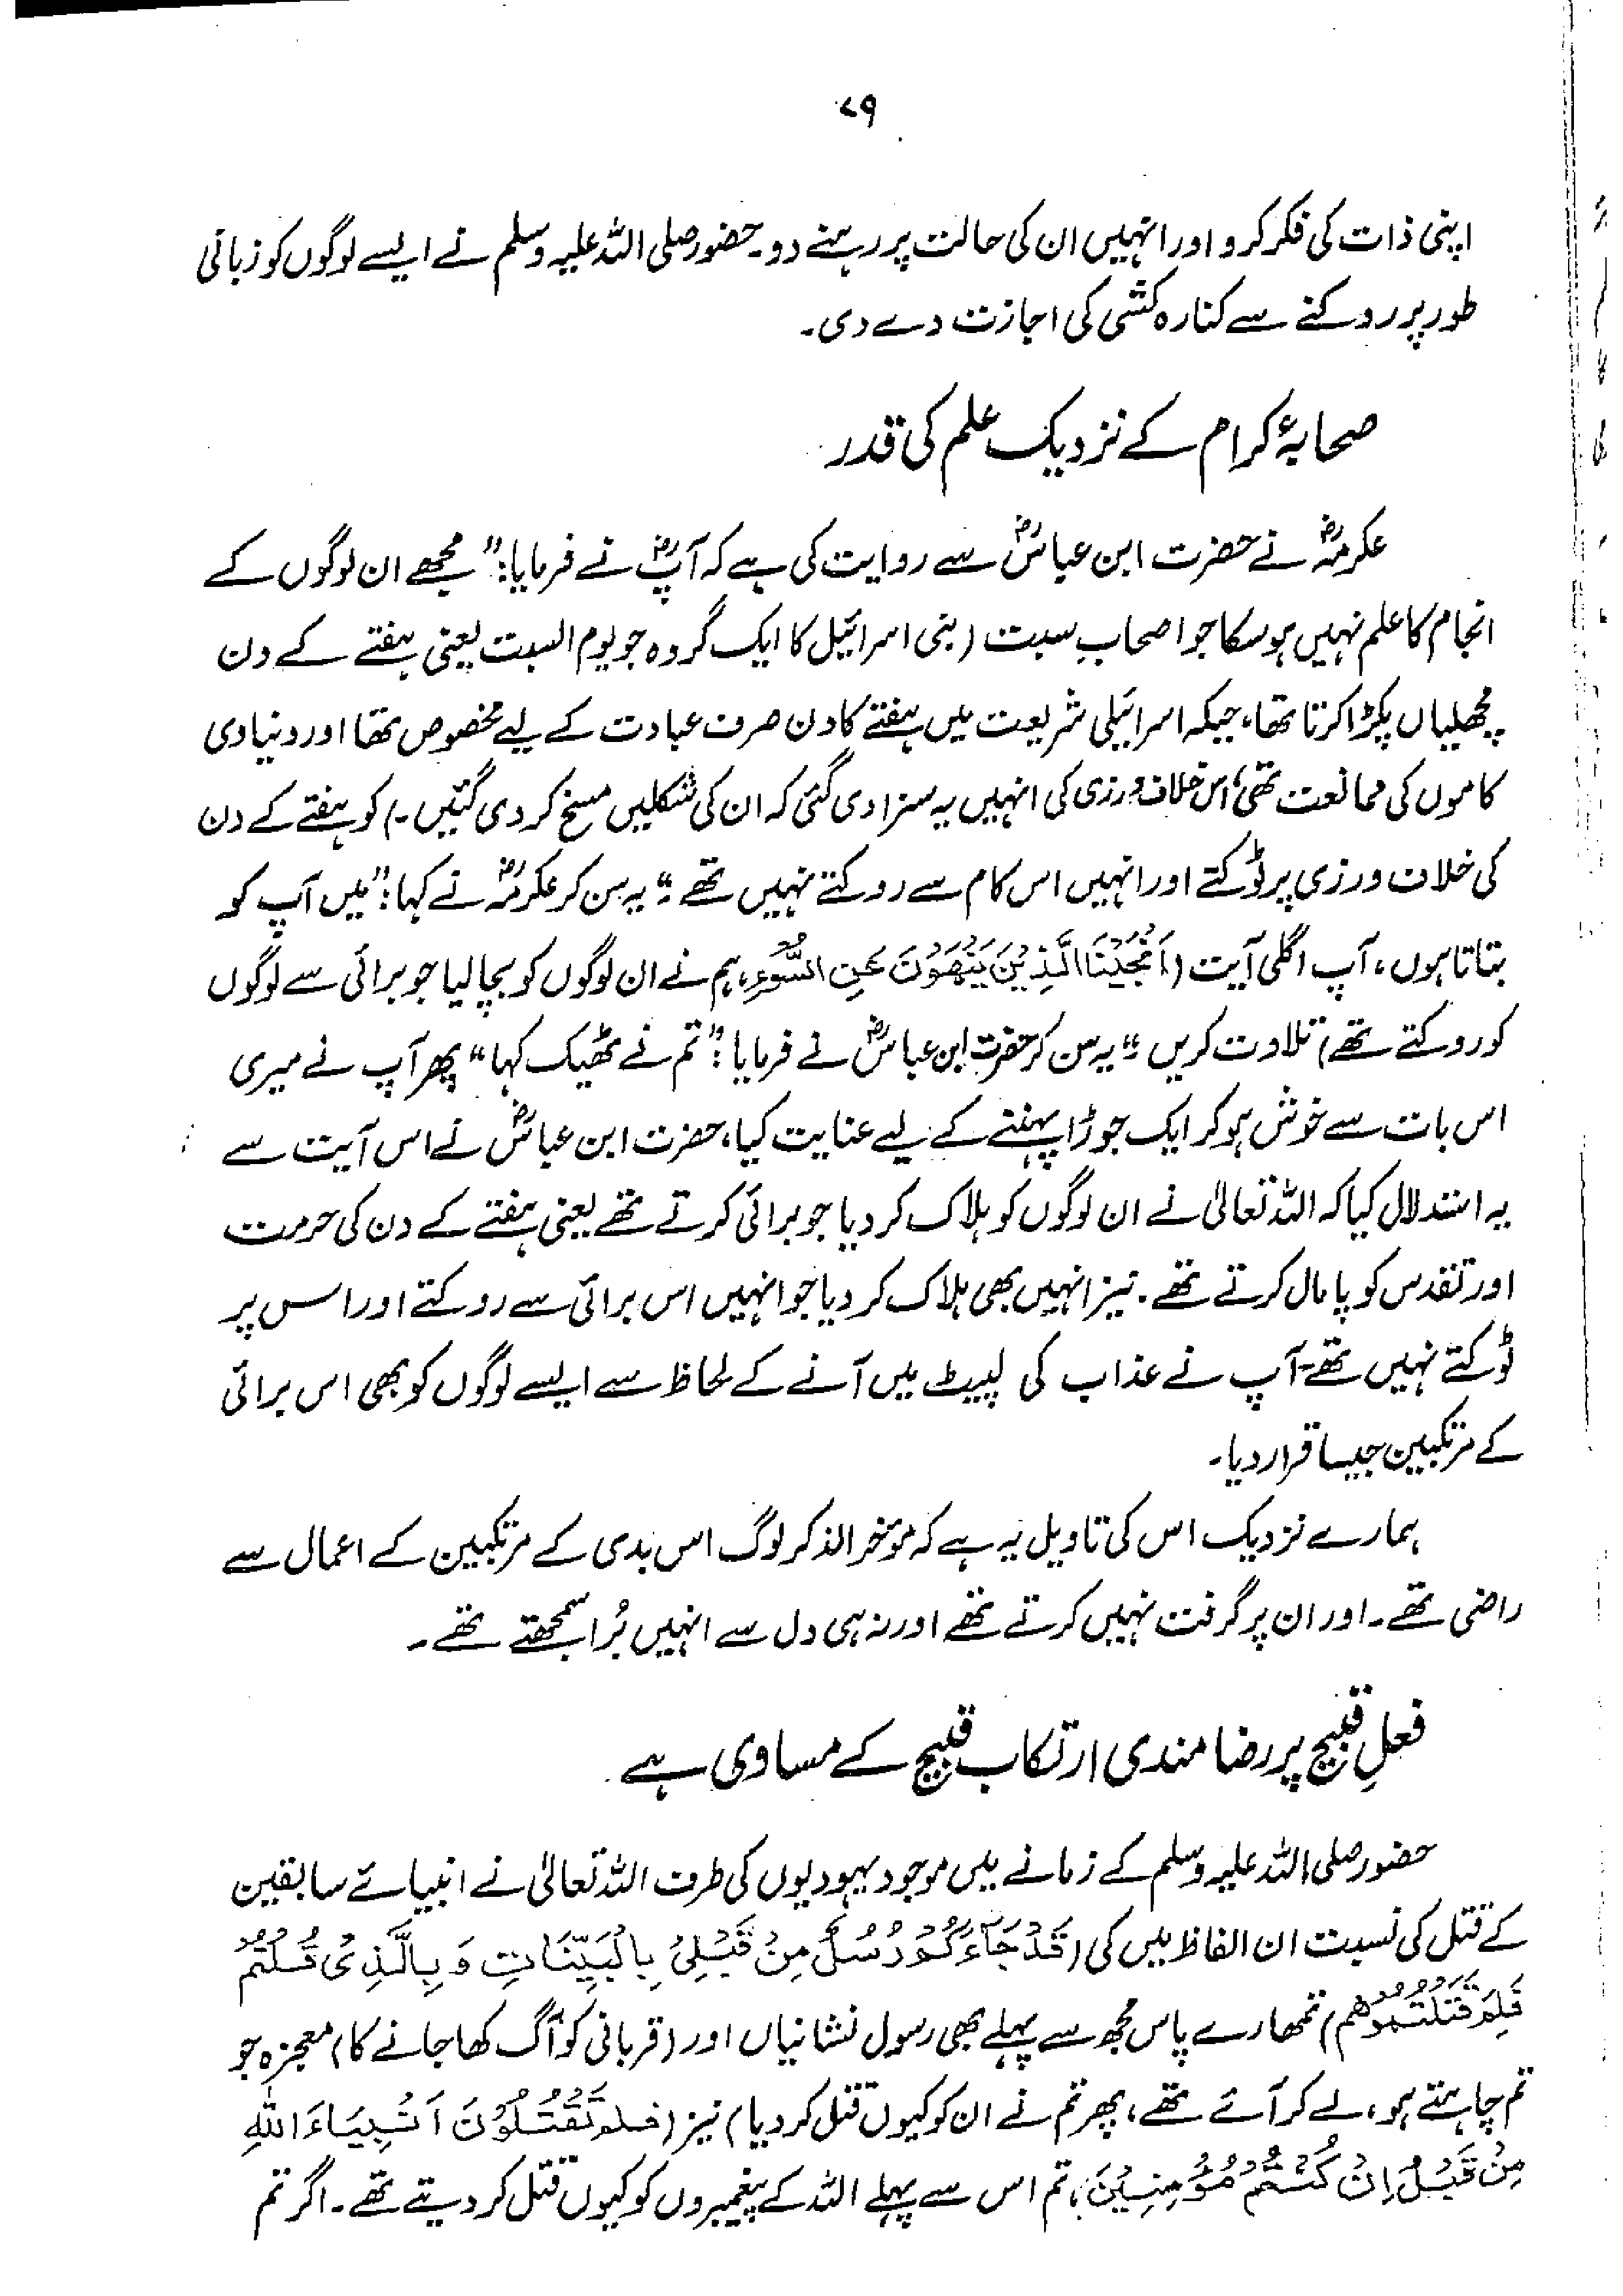 ۷۹
اپنی ذات کی فکر کرو اور انہیں ان کی حالت پر رہنے دو۔ حضور صلی اللہ علیہ وسلم نے ایسے لوگوں کو زبانی
طور پر روکنے سے کنارہ کشی کی اجازت دے دی۔
صحابۂ کرام کے نزدیک علم کی قدر
عکرمہؓ نے حضرت ابن عباسؓ سے روایت کی ہے کہ آپؓ نے فرمایا: "مجھے ان لوگوں کے
انجام کا علم نہیں ہو سکا جو اصحابِ سبت (بنی اسرائیل کا ایک گروہ جو یوم السبت یعنی ہفتے کے دن
مچھلیاں پکڑا کرتا تھا، جبکہ اسرائیلی شریعت میں ہفتے کا دن صرف عبادت کے لیے مخصوص تھا اور دنیاوی
کاموں کی ممانعت تھی، اس خلاف ورزی کی انہیں یہ سزا دی گئی کہ ان کی شکلیں مسخ کر دی گئیں۔) کو ہفتے کے دن
کی خلاف ورزی پر ٹوکتے اور انہیں اس کام سے روکتے نہیں تھے۔" یہ سن کر عکرمہؓ نے کہا: "میں آپ کو
بتاتا ہوں، آپ اگلی آیت (اَنْجَيْنَا الَّذِيْنَ يَنْهَوْنَ عَنِ السُّوْٓءِ، ہم نے ان لوگوں کو بچا لیا جو برائی سے لوگوں
کو روکتے تھے) تلاوت کریں۔" یہ سن کر حضرت ابن عباسؓ نے فرمایا: "تم نے ٹھیک کہا" پھر آپ نے میری
اس بات سے خوش ہو کر ایک جوڑا پہننے کے لیے عنایت کیا، حضرت ابن عباسؓ نے اس آیت سے
یہ استدلال کیا کہ اللہ تعالیٰ نے ان لوگوں کو ہلاک کر دیا جو برائی کرتے تھے یعنی ہفتے کے دن کی حرمت
اور تقدس کو پامال کرتے تھے۔ نیز انہیں بھی ہلاک کر دیا جو انہیں اس برائی سے روکتے اور اس پر
ٹوکتے نہیں تھے۔ آپ نے عذاب کی لپیٹ میں آنے کے لحاظ سے ایسے لوگوں کو بھی اس برائی
کے مرتکبین جیسا قرار دیا۔
ہمارے نزدیک اس کی تاویل یہ ہے کہ مؤخر الذکر لوگ اس بدی کے مرتکبین کے اعمال سے
راضی تھے۔ اور ان پر گرفت نہیں کرتے تھے اور نہ ہی دل سے انہیں بُرا سمجھتے تھے۔
فعلِ قبیح پر رضامندی ارتکاب قبیح کے مساوی ہے
حضور صلی اللہ علیہ وسلم کے زمانے میں موجود یہودیوں کی طرف اللہ تعالیٰ نے انبیائے سابقین
کے قتل کی نسبت ان الفاظ میں کی (قَدْ جَآءَكُمْ رُسُلٌ مِنْ قَبْلِيْ بِالْبَيِّنَاتِ وَبِالَّذِيْ قُلْتُمْ
فَلِمَ قَتَلْتُمُوْهُمْ) تمھارے پاس مجھ سے پہلے بھی رسول نشانیاں اور (قربانی کو آگ کھا جانے کا) معجزہ جو
تم چاہتے ہو، لے کر آئے تھے، پھر تم نے ان کو کیوں قتل کر دیا) نیز (فلم تَقْتُلُوْنَ اَنْبِيَاءَ اللهِ
مِنْ قَبْلُ اِنْ كُنْتُمْ مُؤْمِنِيْنَ، تم اس سے پہلے اللہ کے پیغمبروں کو کیوں قتل کر دیتے تھے۔ اگر تم